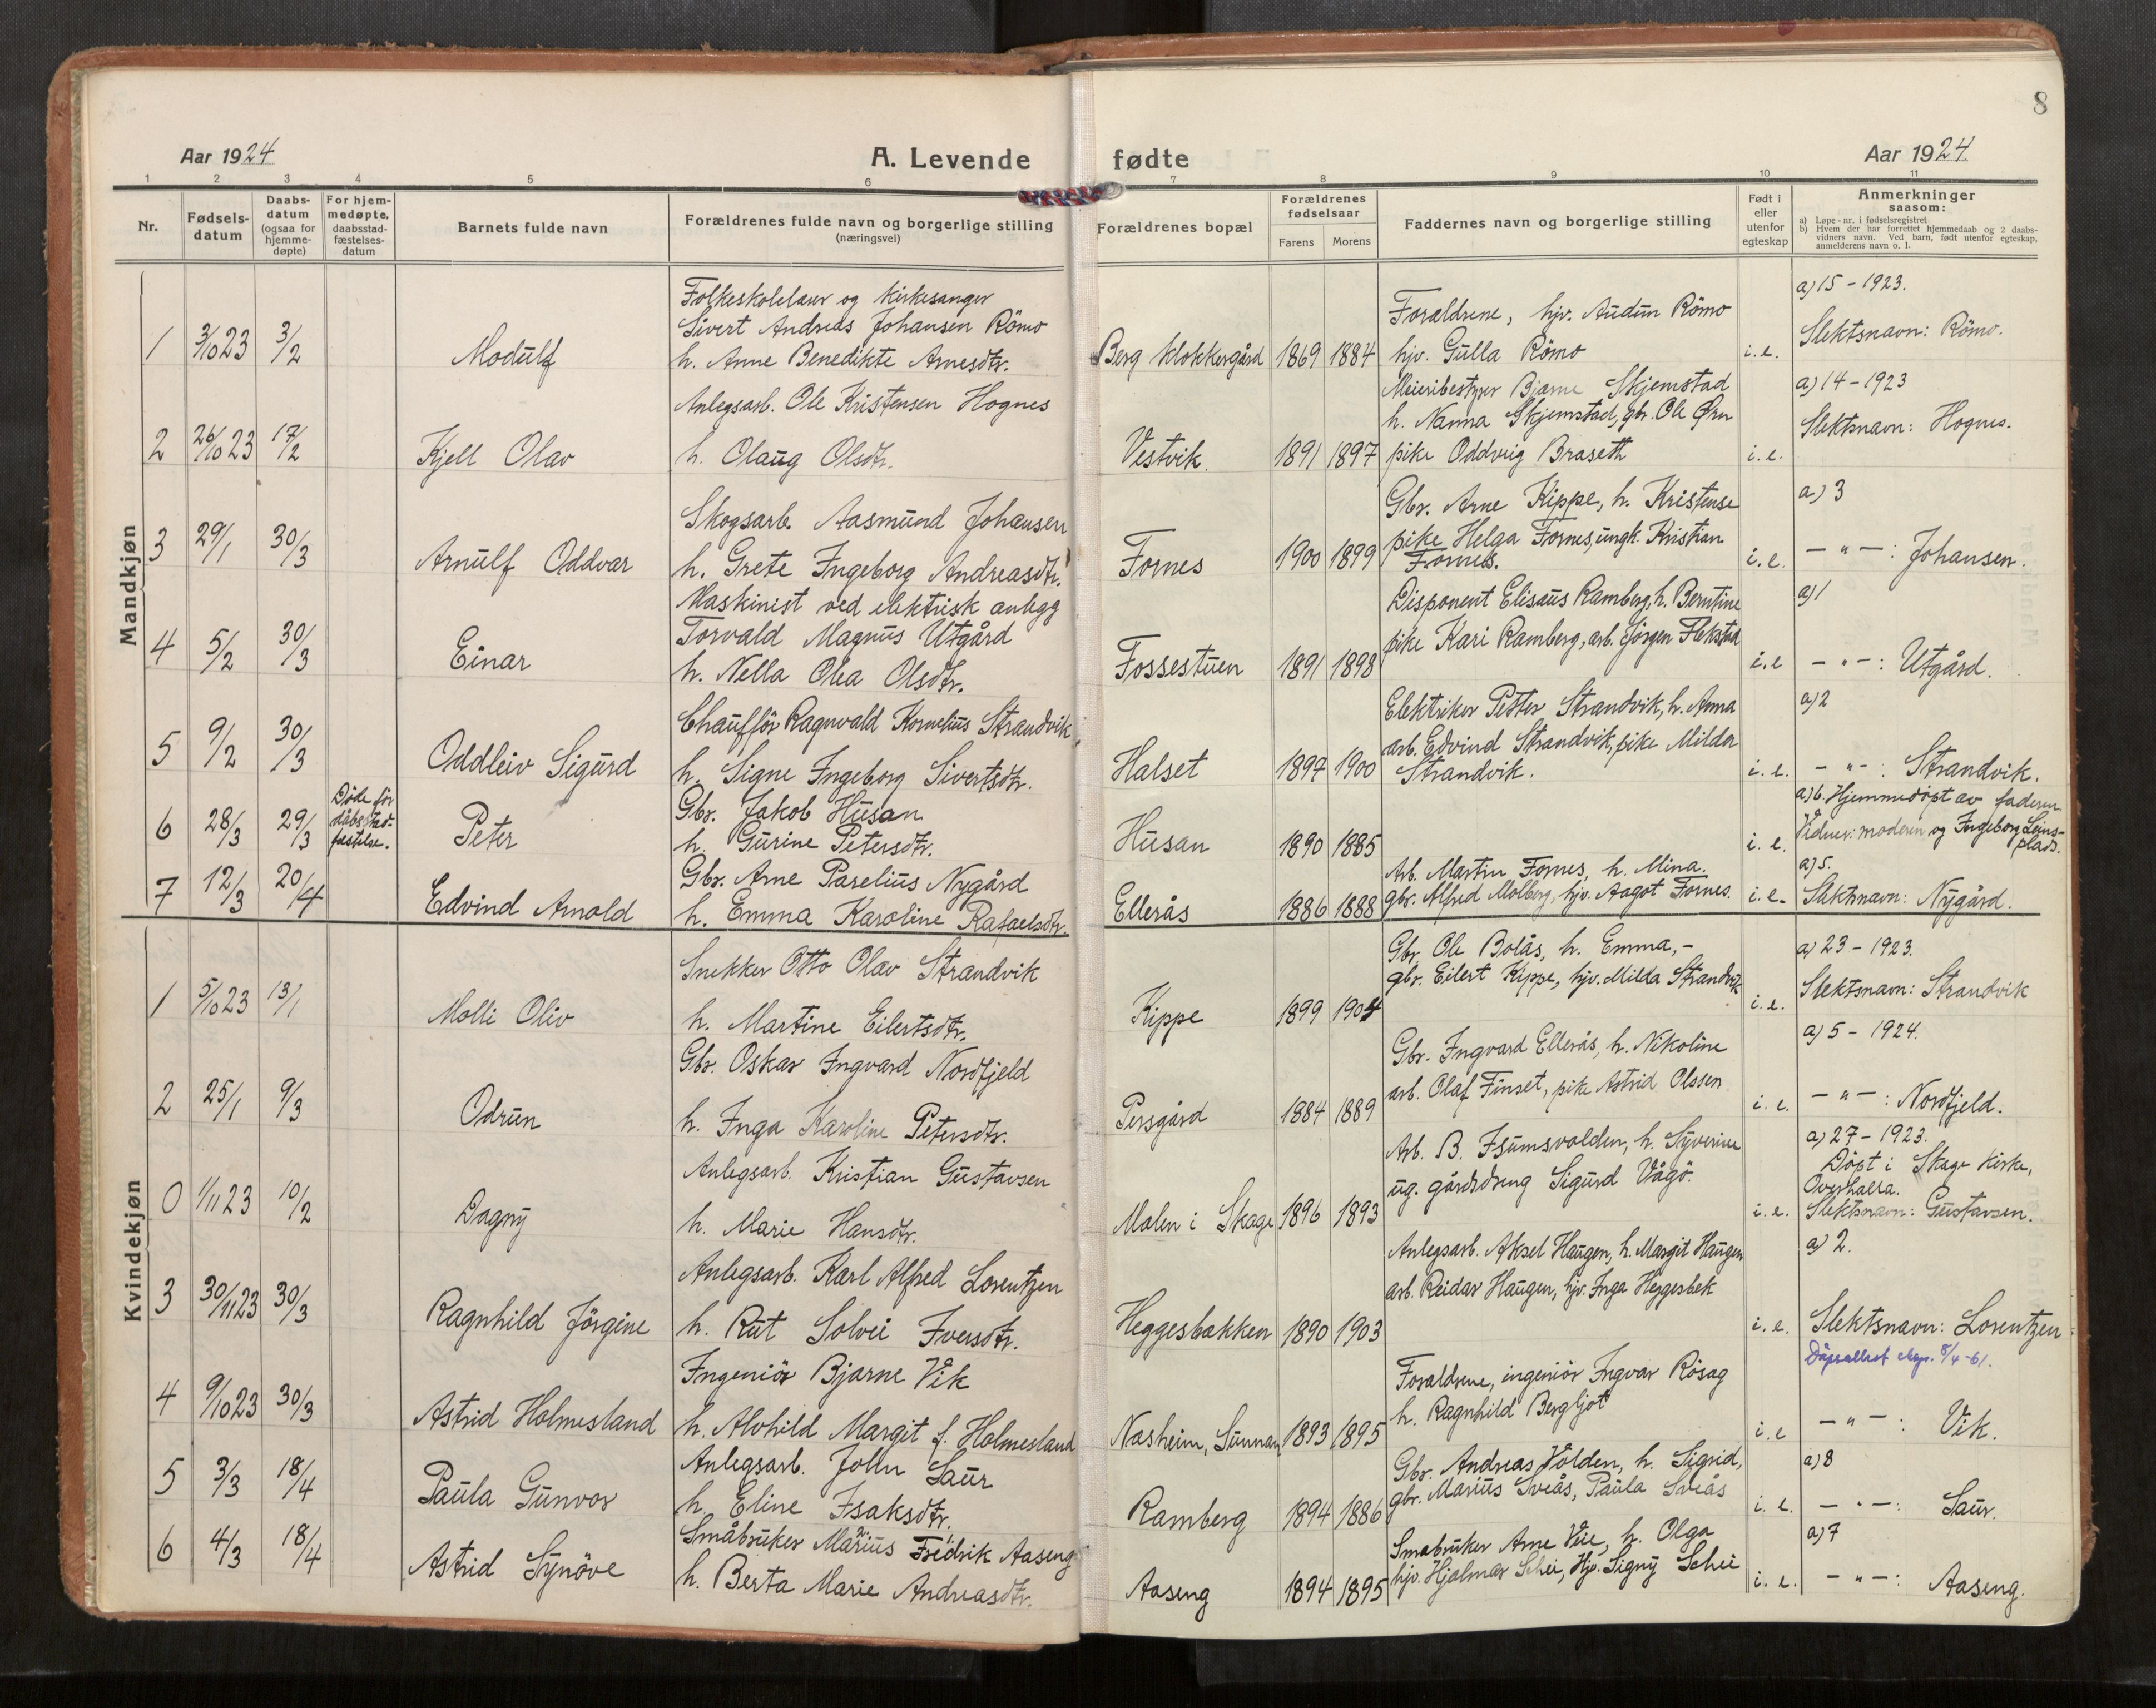 8
Aar 1924
A. Levende fødte
Aar 1924.
1 2 3 4 5 6 7 8 9 10 11
Nr.
Fødselsdatum
Daabsdatum (ogsaa for hjemmedøpte)
For hjemmedøpte, daabsstadfæstelsesdatum
Barnets fulde navn
Forældrenes fulde navn og borgerlige stilling (næringsvei)
Forældrenes bopæl
Forældrenes fødselsaar
Farens Morens
Faddernes navn og borgerlige stilling
Født i eller utenfor egteskap
Anmerkninger saasom:
a) Løpe-nr. i fødselsregistret
b) Hvem der har forrettet hjemmedaab og 2 daabsvidners navn. Ved barn, født utenfor egteskap, anmelderens navn o. l.
Mandkjøn
1 3/10 23 3/2 Modulf
Folkeskolelærer og kirkesanger
Sivert Andreas Johansen Römo
h. Anne Benedikte Arnesdtr.
Berg klokkergård 1869 1884
Forældrene, hjv. Audun Römo
hjv. Gulla Römo
i.e.
a) 15 - 1923.
Slektsnavn: Römo.
2 26/10 23 17/2 Kjell Olav
Anlegsarb. Ole Kristensen Hognes
h. Olaug Olsdtr.
Vestvik. 1891 1897
Meieribestyrer Bjarne Skjemstad
h. Nanna Skjemstad, gbr. Ole Ørn
pike Oddveig Braseth
i.e.
a) 14 - 1923
Slektsnavn: Hognes.
3 29/1 30/3 Arnulf Oddvar
Skogsarb. Aasmund Johansen
h. Grete Ingeborg Andreasdtr.
Fornes 1900 1899
Gbr. Arne Kippe, h. Kristense
pike Helga Fornes, ungk. Kristian
Fornes.
i.e.
a) 3
— " — : Johansen.
4 5/2 30/3 Einar
Maskinist ved elektrisk anlegg
Torvald Magnus Utgård
h. Nella Olea Olsdtr.
Fossestuen 1891 1898
Disponent Elisæus Ramberg, h. Berntine
pike Kari Ramberg, arb. Jörgen Flekstad
i.e
a) 1
— " — : Utgård.
5 9/2 30/3 Oddleiv Sigurd
Chaufför Ragnvald Kornelius Strandvik
h. Signe Ingeborg Sivertsdtr.
Halset 1897 1900
Elektriker Petter Strandvik, h. Anna
arb. Edvind Strandvik, pike Milda
Strandvik.
i.e.
a) 2
— " — : Strandvik.
6 28/3 29/3 Døde før dåbsstadfæstelse. Peter
Gbr. Jakob Husan
h. Gurine Petersdtr.
Husan 1890 1885
i.e.
a) 6. Hjemmedøpt av faderen
Vidner: moderen og Ingeborg Leinsplads.
7 12/3 20/4 Edvind Arnold
Gbr. Arne Parelius Nygård
h. Emma Karoline Rafaelsdtr.
Ellerås 1886 1888
Arb. Martin Fornes, h. Mina.
gbr. Alfred Molberg, hjv. Aagot Fornes.
i.e.
a) 5.
Slektsnavn: Nygård.
Kvindekjøn
1 5/10 23 13/1 Molli Oliv
Snekker Otto Olav Strandvik
h. Martine Eilertsdtr.
Kippe 1899 1904
Gbr. Ole Bolås, h. Emma, -
gbr. Eilert Kippe, hjv. Milda Strandvik
i.e.
a) 23 - 1923.
Slektsnavn: Strandvik
2 25/1 9/3 Odrun
Gbr. Oskar Ingvard Nordfjeld
h. Inga Karoline Petersdtr.
Persgård 1884 1889
Gbr. Ingvard Ellerås, h. Nikoline
arb. Olaf Finset, pike Astrid Olssen
i.e.
a) 5 - 1924.
— " — : Nordfjeld.
0 1/11 23 10/2 Dagny
Anlegsarb. Kristian Gustavsen
h. Marie Hansdtr.
Molen i Skage 1896 1893
Arb. B. Fsumsvolden, h. Syverine
ug. gårdsdreng Sigurd Vågö.
i.e.
a) 27 - 1923.
Döpt i Skage kirke,
Overhalla.
Slektsnavn: Gustavsen.
3 30/11 23 30/3 Ragnhild Jörgine
Anlegsarb. Karl Alfred Lorentzen
h. Rut Solvei Iversdtr.
Heggesbakken 1890 1903
Anlegsarb. Aksel Haugen, h. Margit Haugen
arb. Reidar Haugen, hjv. Inga Heggesbek
i.e.
a) 2.
Slektsnavn: Lorentzen
Dåpsattest 8/4-61.
4 9/10 23 30/3 Astrid Holmesland
Ingeniör Bjarne Vik
h. Alvhild Margit f. Holmesland
Næsheim, Sunnan 1893 1895
Forældrene, ingeniör Ingvar Rösag
h. Ragnhild Bergljot
i.e
— " — : Vik.
5 3/3 18/4 Paula Gunvor
Anlegsarb. John Saur
h. Eline Isaksdtr.
Ramberg 1894 1886
Gbr. Andreas Volden, h. Sigrid,
gbr. Marius Sveås, Paula Sveås
i.e.
a) 8
— " — : Saur.
6 4/3 18/4 Astrid Synöve
Småbruker Marius Fredrik Aaseng
h. Berta Marie Andreasdtr.
Aaseng 1894 1895
Småbruker Arne Veie, h. Olga
hjv. Hjalmar Schei, hjv. Signy Schei
i.e.
a) 7
— " — : Aaseng.